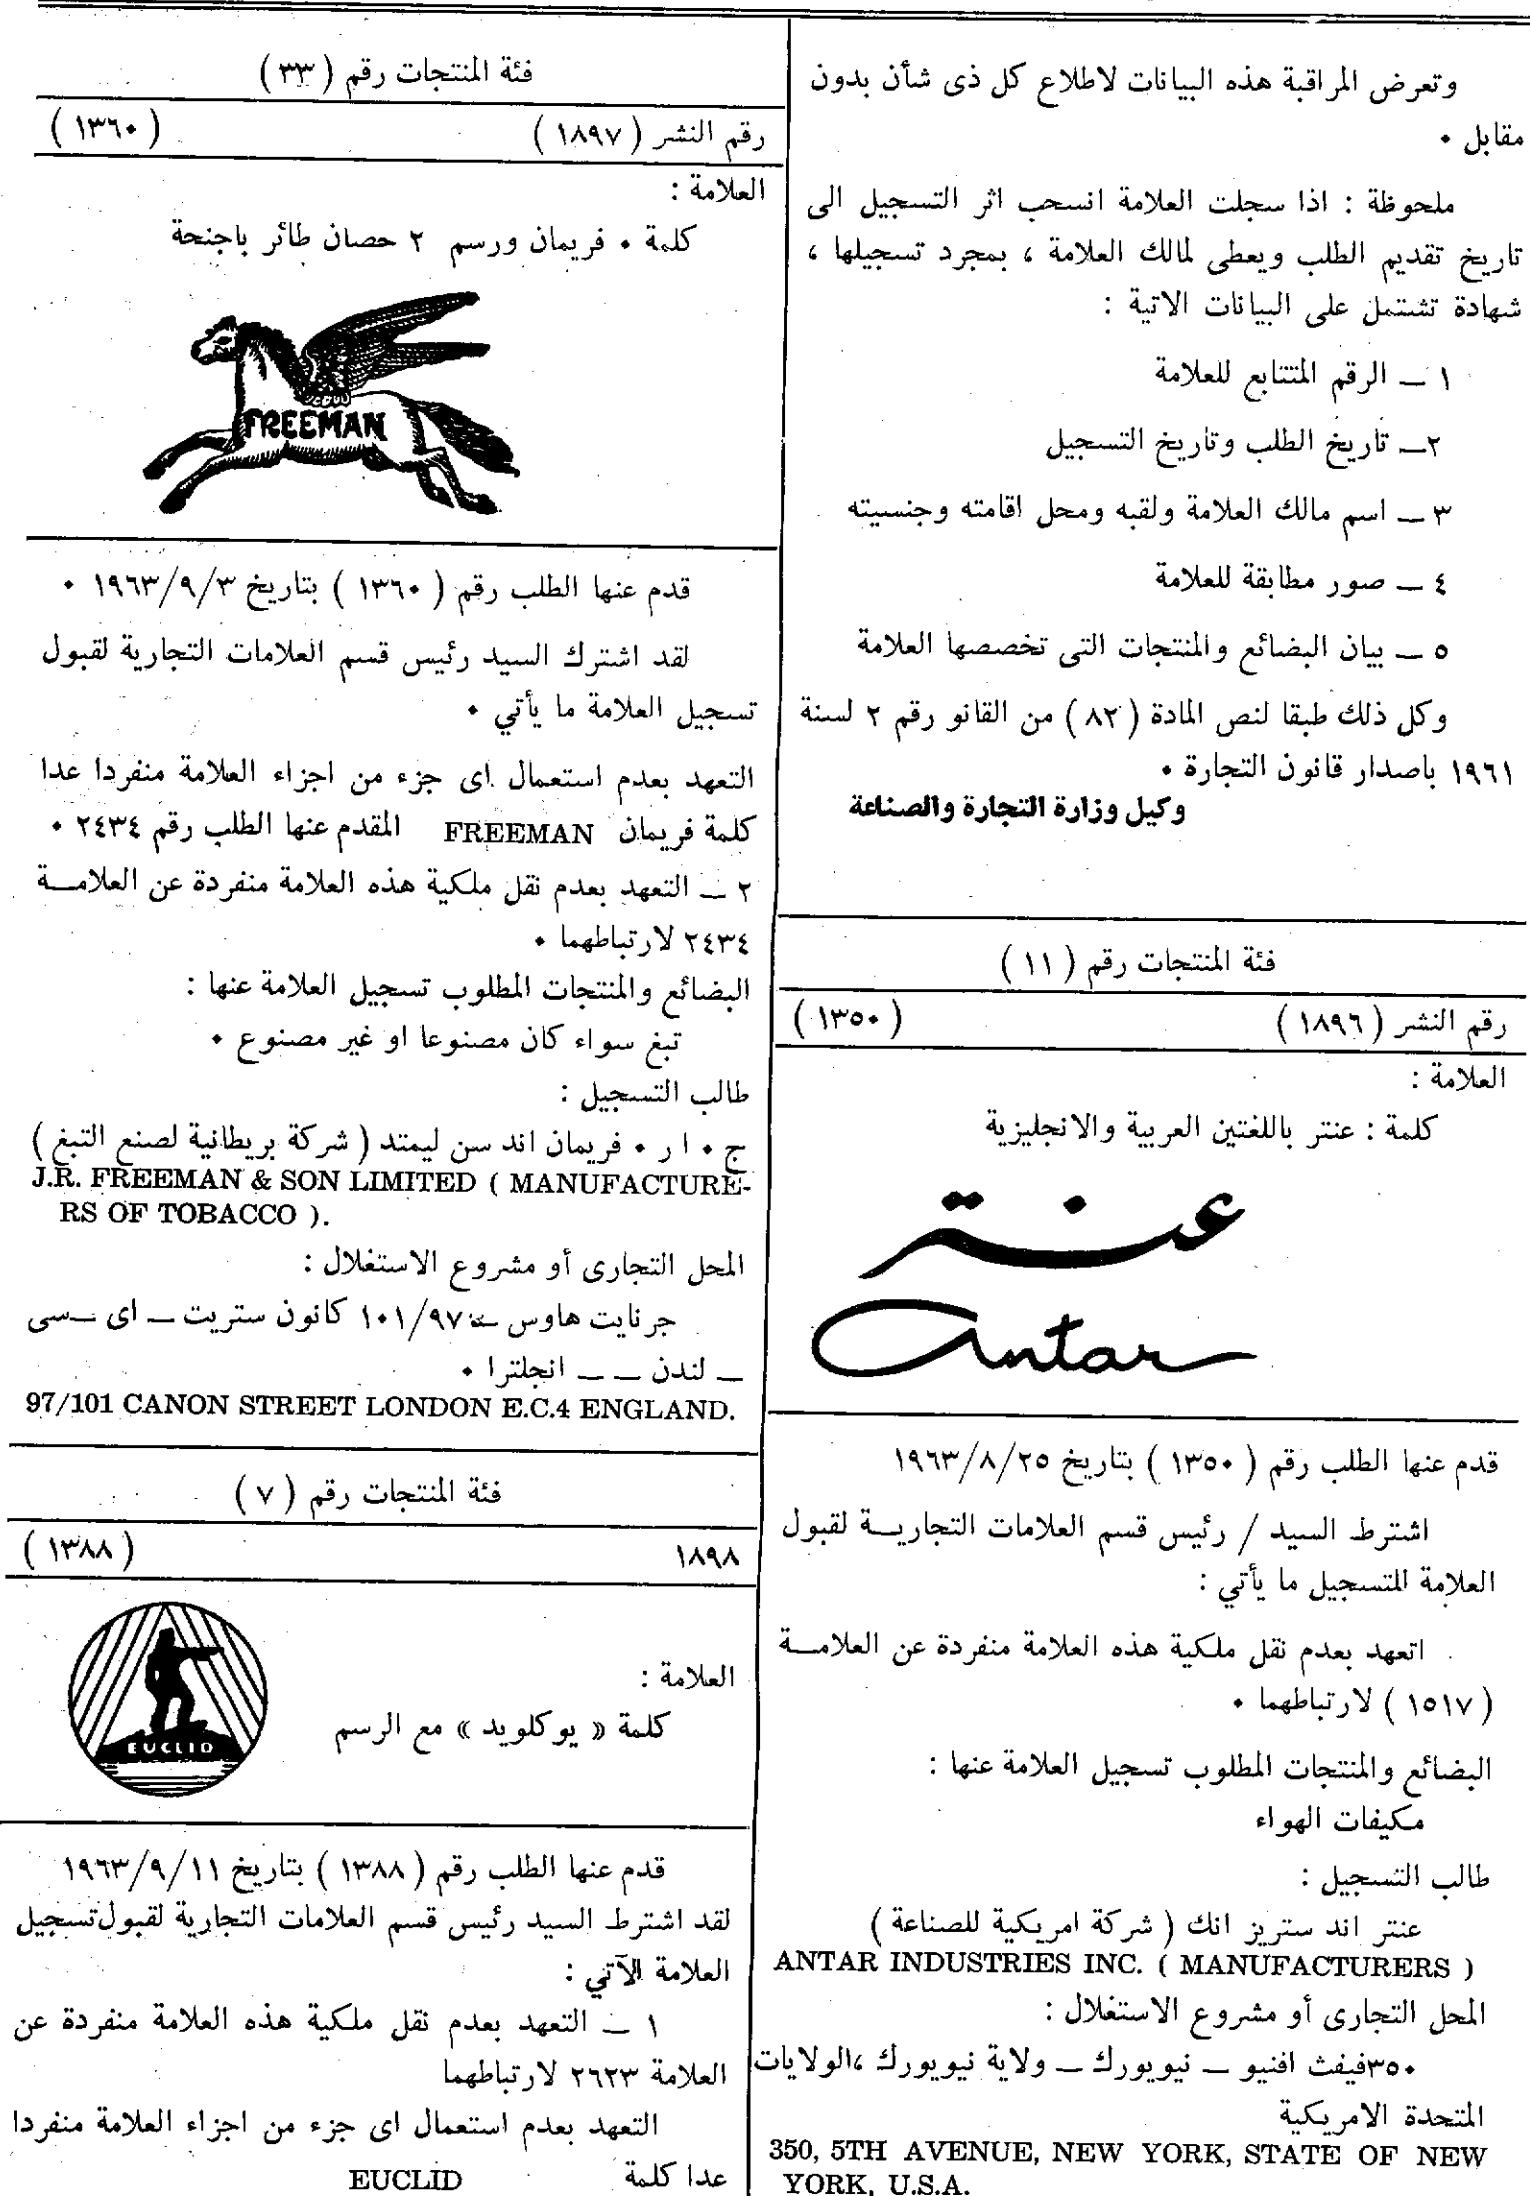 وتعرض المراقبة هذه البيانات لاطلاع كل ذى شأن بدون
مقابل ٠
ملحوظة : اذا سجلت العلامة انسحب اثر التسجيل الى
تاريخ تقديم الطلب ويعطى لمالك العلامة ، بمجرد تسجيلها ،
شهادة تشتمل على البيانات الاتية :
١ ــ الرقم المتتابع للعلامة
٢ــ تاريخ الطلب وتاريخ التسجيل
٣ ــ اسم مالك العلامة ولقبه ومحل اقامته وجنسيته
٤ ــ صور مطابقة للعلامة
٥ ــ بيان البضائع والمنتجات التى تخصصها العلامة
وكل ذلك طبقا لنص المادة ( ٨٢ ) من القانو رقم ٢ لسنة
١٩٦١ باصدار قانون التجارة ٠
وكيل وزارة التجارة والصناعة
فئة المنتجات رقم ( ١١ )
رقم النشر ( ١٨٩٦ ) ( ١٣٥٠ )
العلامة :
كلمة : عنتر باللغتين العربية والانجليزية
عنتر
Antar
قدم عنها الطلب رقم ( ١٣٥٠ ) بتاريخ ١٩٦٣/٨/٢٥
اشترط السيد / رئيس قسم العلامات التجاريــة لقبول
العلامة المتسجيل ما يأتي :
اتعهد بعدم نقل ملكية هذه العلامة منفردة عن العلامــة
( ١٥١٧ ) لارتباطهما ٠
البضائع والمنتجات المطلوب تسجيل العلامة عنها :
مكيفات الهواء
طالب التسجيل :
عنتر اند ستريز انك ( شركة امريكية للصناعة )
ANTAR INDUSTRIES INC. ( MANUFACTURERS )
المحل التجارى أو مشروع الاستغلال :
٣٥٠فيفث افنيو ــ نيويورك ــ ولاية نيويورك ،الولايات
المتحدة الامريكية
350, 5TH AVENUE, NEW YORK, STATE OF NEW
YORK, U.S.A.
فئة المنتجات رقم ( ٣٣ )
رقم النشر ( ١٨٩٧ ) ( ١٣٦٠ )
العلامة :
كلمة ٠ فريمان ورسم ٢ حصان طائر باجنحة
FREEMAN
قدم عنها الطلب رقم ( ١٣٦٠ ) بتاريخ ١٩٦٣/٩/٣ ٠
لقد اشترك السيد رئيس قسم العلامات التجارية لقبول
تسجيل العلامة ما يأتي ٠
التعهد بعدم استعمال اى جزء من اجزاء العلامة منفردا عدا
كلمة فريمان FREEMAN المقدم عنها الطلب رقم ٢٤٣٤ ٠
٢ ــ التعهد بعدم نقل ملكية هذه العلامة منفردة عن العلامــة
٢٤٣٤ لارتباطهما ٠
البضائع والمنتجات المطلوب تسجيل العلامة عنها :
تبغ سواء كان مصنوعا او غير مصنوع ٠
طالب التسجيل :
ج ٠ ا ر ٠ فريمان اند سن ليمتد ( شركة بريطانية لصنع التبغ )
J.R. FREEMAN & SON LIMITED ( MANUFACTURE-
RS OF TOBACCO ).
المحل التجارى أو مشروع الاستغلال :
جرنايت هاوس ــ ١٠١/٩٧ كانون ستريت ــ اى ــسى
ــ لندن ــ ــ انجلترا ٠
97/101 CANON STREET LONDON E.C.4 ENGLAND.
فئة المنتجات رقم ( ٧ )
١٨٩٨ ( ١٣٨٨ )
العلامة :
كلمة « يوكلويد » مع الرسم
EUCLID
قدم عنها الطلب رقم ( ١٣٨٨ ) بتاريخ ١٩٦٣/٩/١١
لقد اشترط السيد رئيس قسم العلامات التجارية لقبول تسجيل
العلامة الآتي :
١ ــ التعهد بعدم نقل ملكية هذه العلامة منفردة عن
العلامة ٢٦٢٣ لارتباطهما
التعهد بعدم استعمال اى جزء من اجزاء العلامة منفردا
عدا كلمة EUCLID